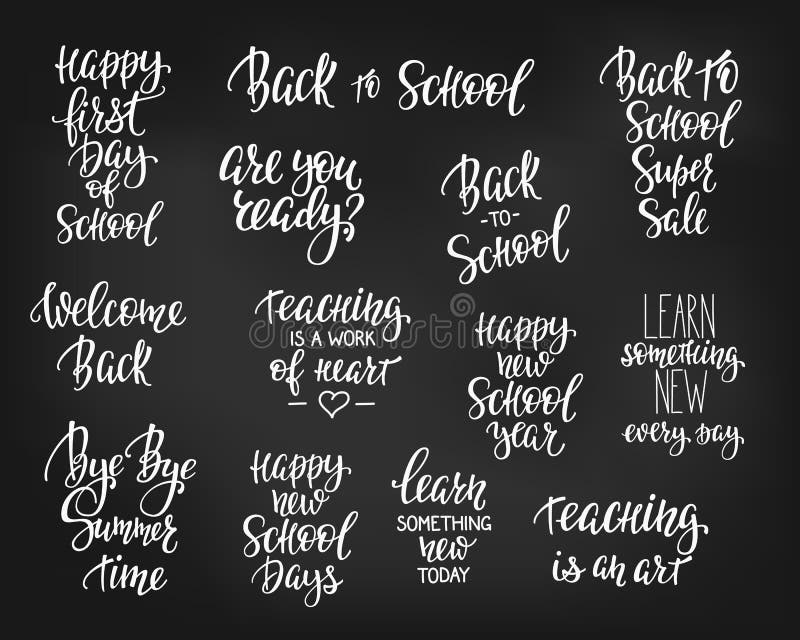 Happy
first
Day
of
School
Back to School
Back to
School
Super
Sale
are you
ready?
Back
-to-
School
Welcome
Back
Teaching
IS A WORK
of Heart
Happy
new
School
year
LEARN
something
NEW
every day
Bye Bye
Summer
time
Happy
new
School
Days
learn
SOMETHING
new
TODAY
Teaching
is an art
dreamstime